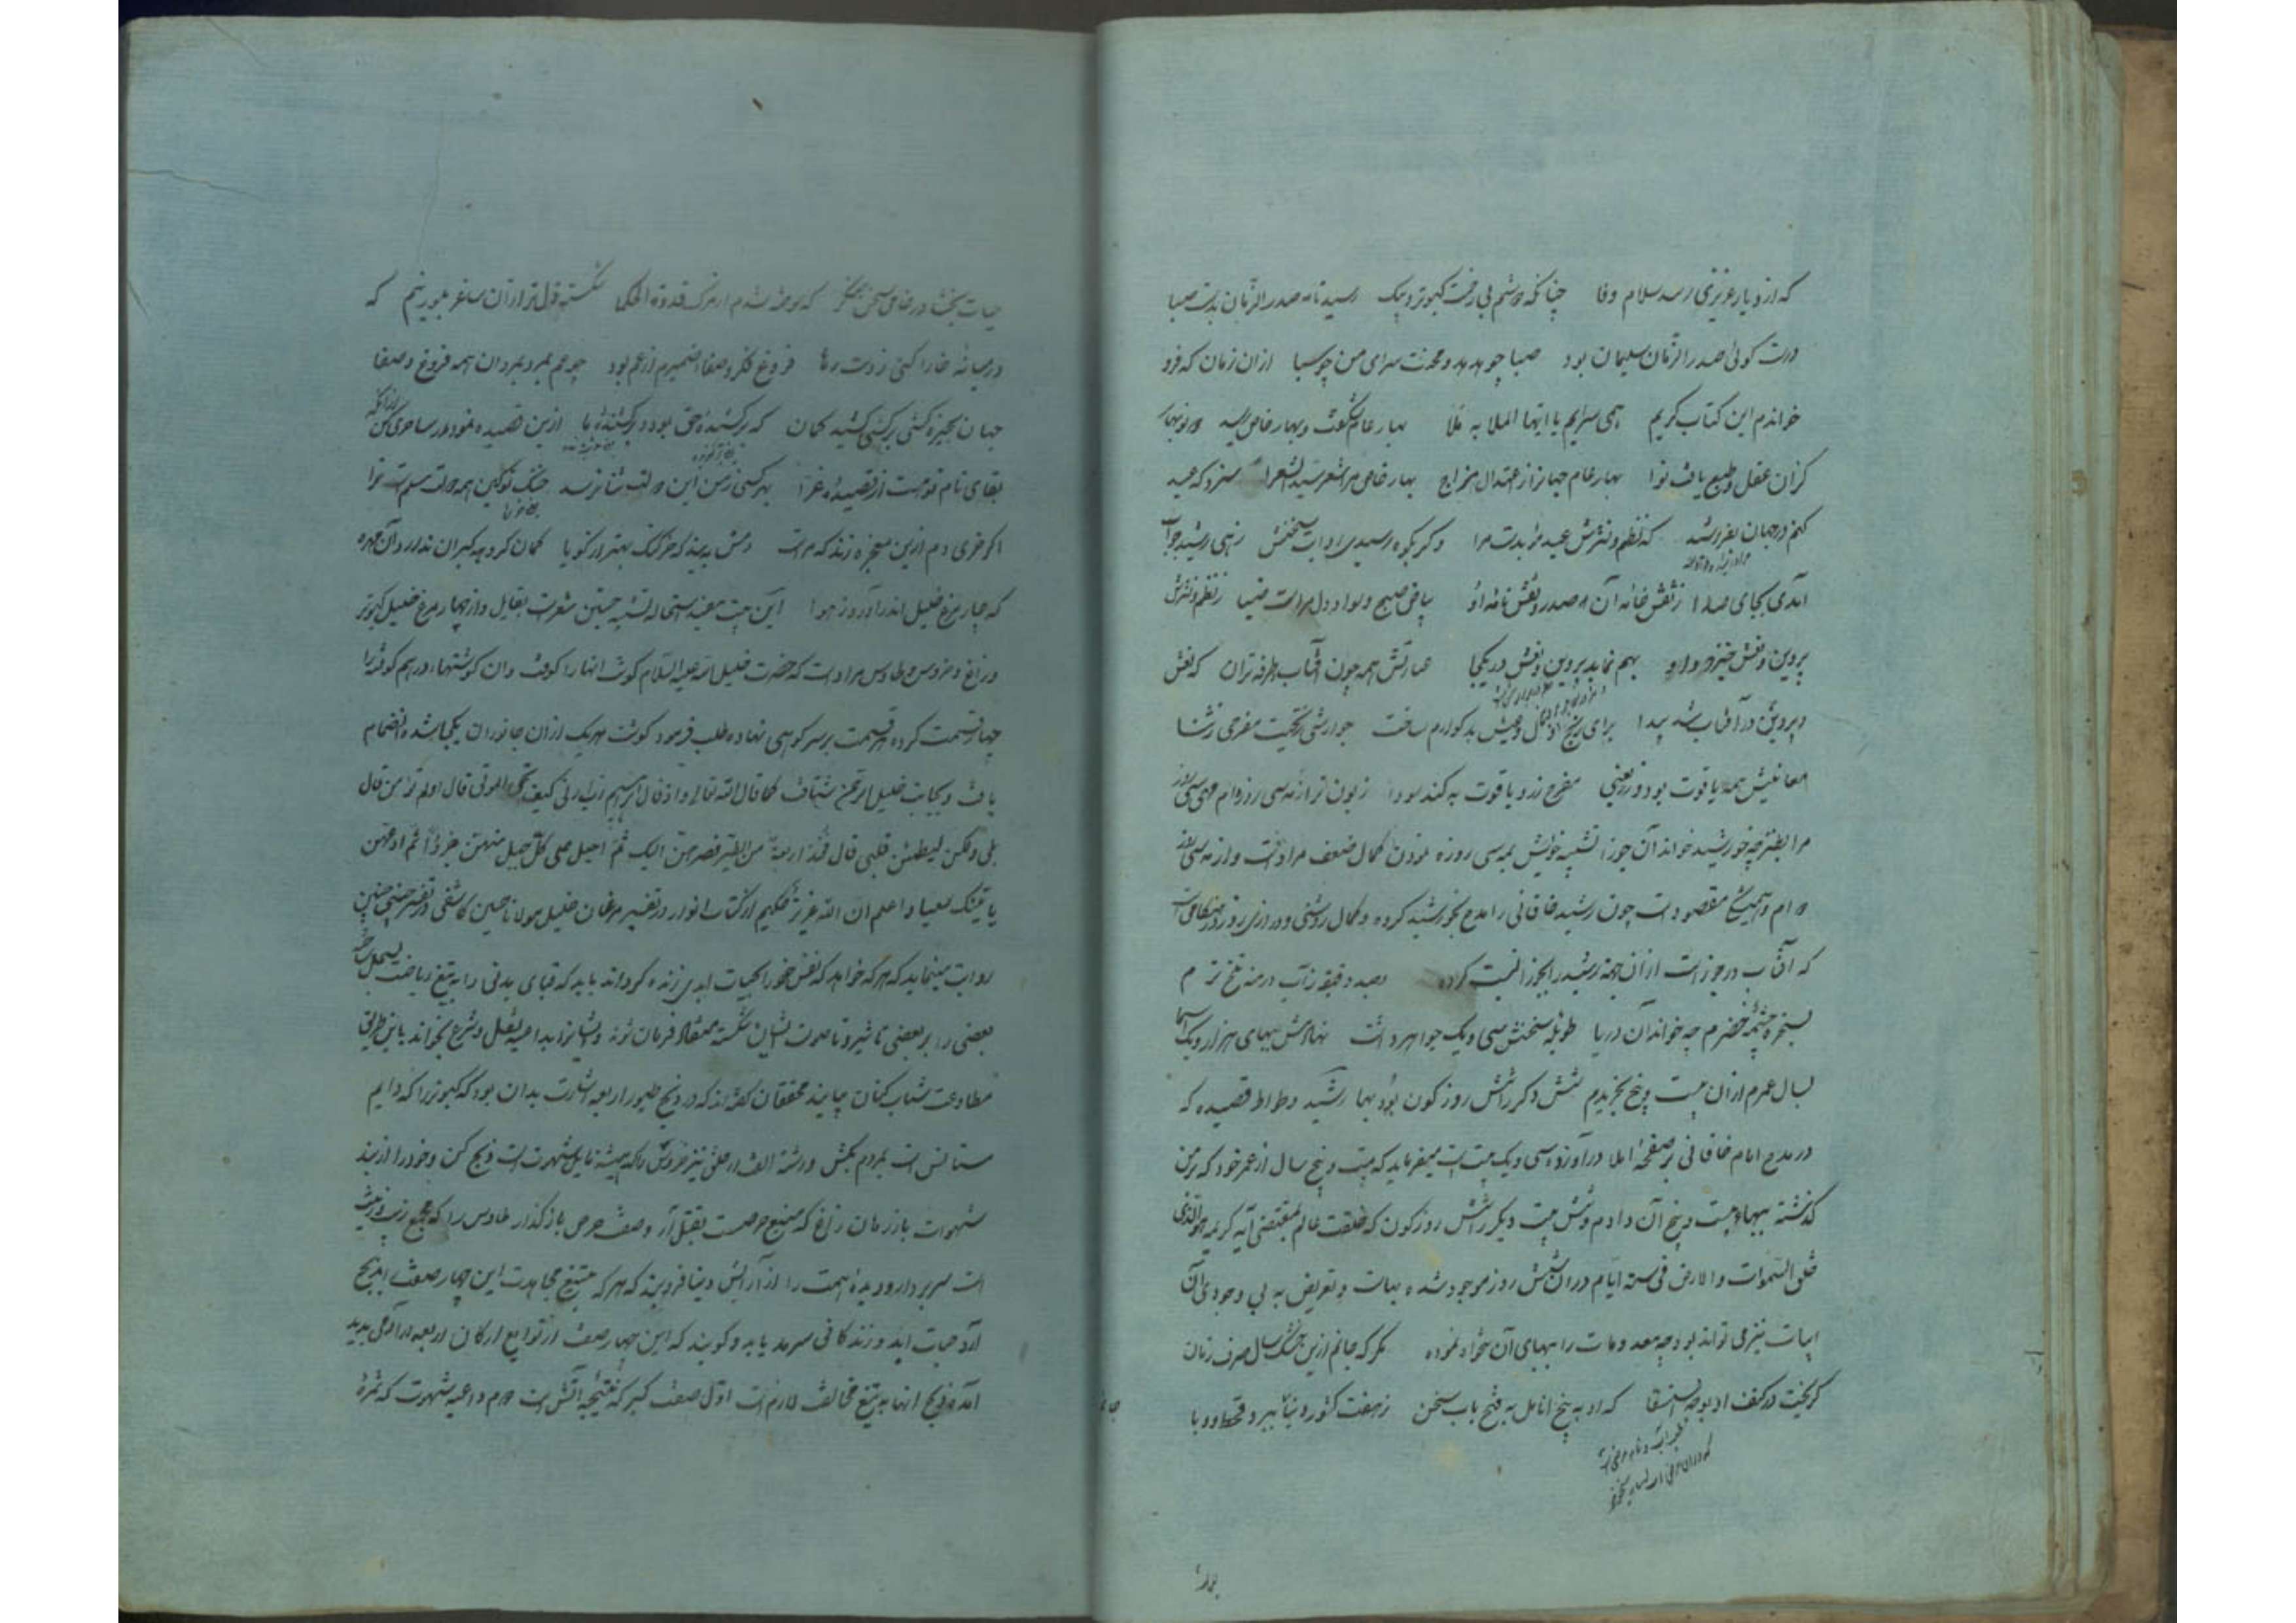 که از دیار عزیزی رسد سلام وفا چنانکه در شم بی رفت کبوتر و پیک رسید نامه صدر الزمان بدست صبا
درست کوئی صدر الزمان سلیمان بود صبا چو هدهد و محنت سرای من چو سبا ازان زمان که فرو
خواندم این کتاب کریم همی سرایم یا ایها الملا به ملا بهار عام شکفت و بهار خاص رسید دو نوبهار
کزان عقل و طبع یافت نوا بهار عام جهانرا ز اعتدال مزاج بهار خاص مرا شعر سید الشعرا سزد که عید
کنم در جهان بفر رشید که نظم و نثرش عید مؤبدست مرا وکر بکوه رسیدی روایت سخنش زهی رشید جواب
آمدی بجای صدا ز نقش خامه آن صدر و نقش نامه او بیاض صبح و سواد دل مراست ضیا ز نظم و نثرش
پروین و نعش خیزد و او بهم نماید پروین و نعش در یکجا عبارتش همه چون آفتاب طرفه تران که نعش
و پروین در آفتاب شد پیدا برای رنج دل و عیش بد کوارم ساخت جوارشی ز تحیت مفرحی ز ثنا
معانیش همه یاقوت بود و زر یعنی مفرح زر و یاقوت به کند سودا زبون تر از مه سی روزه ام مهی سی روز
مرا بطنز چو خورشید خواند آن جوزا تشبیه خویش بمه سی روزه نمودن کمال ضعف مراد است و از مه سی روز
که آفتاب در جوز است ازان جهة رشید را بجوزا نسبت کرده وصد دقیقه ز آب در منه تلخ ترم
بسخره چشمه خضرم چه خواند آن دریا طویله سخنش سی و یک جواهر داشت نهادمش ببهای هزار و یک اسما
بسال عمرم ازان بیست و پنج بخریدم شش دکر را شش روز کون بود بها رشید وطواط قصیده که
در مدح امام خاقانی بر صفحه املا در آورده سی و یک بیت است میفرماید که بیست و پنج سال از عمر خود که بر من
کذشته ببهای بیست و پنج آن دادم و شش بیت دیکر را شش روز کون که خلقت عالم بمقتضی آیه کریمه هو الذی
خلق السموات والارض فی ستة ایام دران شش روز موجود شده بهاست و تعریض به بی وجودی آن
ابیات نیز می تواند بود چه معدومات را ببهای آن شمرده نموده مکر که جانم ازین خشک سال صرف زمان
کریخت در کنف او بوجه استسقا که او به پنج انامل به فتح باب سخن ز هفت کشور دنیا ببرد قحط و وبا
حیات بخشا در خامی سخن منکر که سوخته شدم از مرک قدوة الحکما شکسته دل تر ازان ساغر بلورینم که
در میانه خارا کنی ز دست رها فروغ فکر و صفاء ضمیرم از عم بود چو عم بمرد بمرد ان همه فروغ و صفا
جهان بخیره کشی بر کسی کشید کمان که بر کشیده حق بود و بر کشنده ما ازین قصیده نمودار ساحری کن
بقای نام تو است از قصیده غرا بهر کسی ز من این دولت ثنا نرسد خنک تو کین همه دولت مسلم است ترا
اکر خری دم ازین معجزه زند که مراست دمش ببند که خر کنک بهتر از کویا کمان کرد چه کبیران ندارد آن مهره
که چار مرغ خلیل اندر آورد ز هوا این بیت مفید ستی
و زاغ و خروس و طاوس مراد است که حضرت خلیل الله علیه السلام کوشت انها را کوفت وان کوشتها درهم کوفته را
چهار قسمت کرده هر قسمت بر سر کوهی نهاده طلب فرمود کوشت هر یک ازان جانوران یکجا شده انضمام
یافت و بجانب خلیل الرحمن شتافت کما قال الله تعالی واذ قال ابرهیم رب ارنی کیف تحیی الموتی قال اولم تؤمن قال
بلی ولکن لیطمئن قلبی قال فخذ اربعة من الطیر فصرهن الیک ثم اجعل علی کل جبل منهن جزءا ثم ادعهن
یاتینک سعیا واعلم ان الله عزیز حکیم از کتاب انوار در تفسیر مرغان خلیل مولانا حسین کاشفی در تفسیر حسینی چنین
روایت مینماید که هر که خواهد که نفس خود را بحیات ابدی زنده کرداند باید که قوای بدنی را به تیغ ریاضت بسمل
بعضی را بر بعضی تا صولت ایشان شکسته منقاد فرمان شوند و ایشانرا بداعیه عقل و شرع بخواند باین طریق
مطاوعت شتاب کنان بیایند محققان کفته اند که در ذبح طیور اربعه اشارت بدان بود که کبوتر را که دایم
مستانس است بمردم بکش و رشته الفت از خلق ببر خروس را که همیشه مایل بشهوت است ذبح کن و خود را از بند
شهوات باز رهان زاغ که منبع حرصست بقتل آر و صفت حرص باز کذار طاوس را که مجمع زیب و زینت
است سر بردار و دیده همت را از آرایش دنیا فرو بند که هر که به تیغ مجاهدت این چهار صفت را ذبح
آرد حیات ابد و زندکانی سرمد یابد و کویند که این چهار صفت از توابع ارکان اربعه در آدمی پدید
آمده و ذبح انها به تیغ مخالفت لازم است اول صفت کبر که نتیجه آتش است دوم داعیه شهوت که ثمره